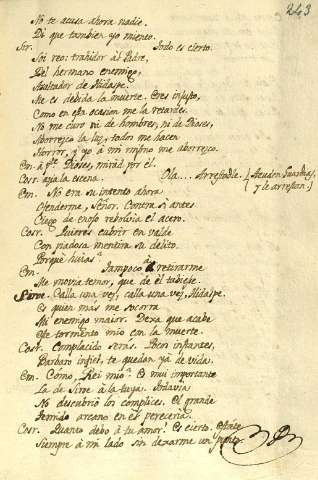 243
No te acusa ahora nadie.
Di que tambien yo miento.
Sir. Todo es cierto.
Soi reo: trahidor al Padre,
Del hermano enemigo,
de Hidaspe.
Me es debida la muerte. Eres injusto,
Como en esta ocasion me la retardes.
No me curo ni de hombres, ni de Dioses,
Aborresco la luz, todos me hacen
Horror, y yo à mi mismo me aborresco.
Em. à pte. Dioses, mirad por èl.
Cosr. à la escena Ola... Arrestadle. (Acuden Guardias, y le arrestan.)
Em. No era su intento ahora
Ofenderme, Señor. Contra si antes
Ciego de enojo rebolvia el acero.
Cosr. Quieres cubrir en valde
Con piadosa mentira su delito.
Porquè huias?
Em. Tampoco à retirarme
Me movia temor, que de èl
Siroe. Calla una vez, calla una vez, Hidaspe.
Es quien mas me socorra
Mi enemigo maior. Dexa que acabe
Este tormento mio con la muerte.
Cosr. Complacido seràs. Pocos instantes,
Barbaro infiel, te quedan ya de vida.
Em. Còmo, Rei mio? Es mui importante
La de Siroe à la tuya. Todavia
No descubriò los complices. El grande
arcano en el pereceria.
Cosr. Quanto debo à tu amor! Es cierto.
Siempre à mi lado sin dexarme un punto.